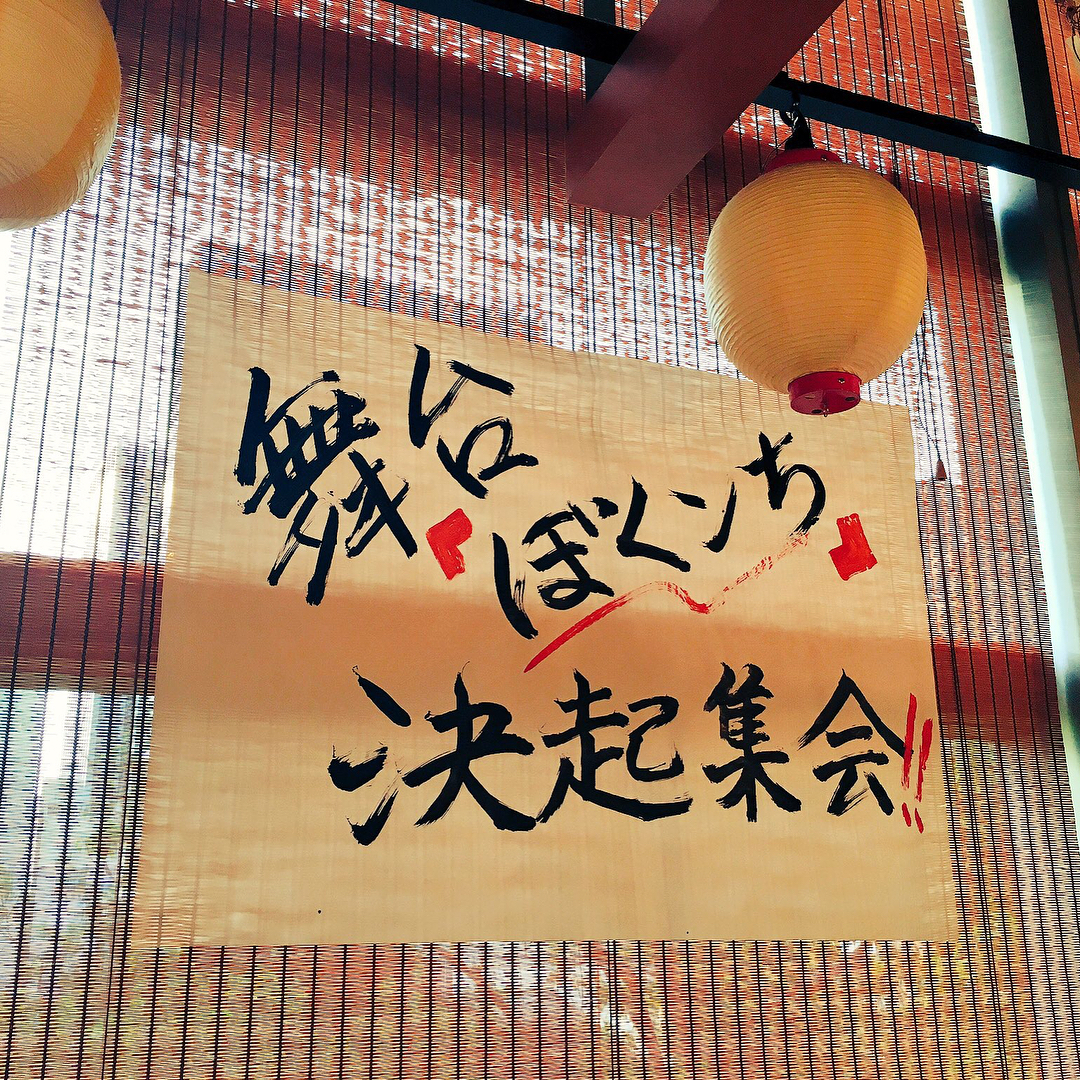 舞台「ぼくんち」
決起集会!!